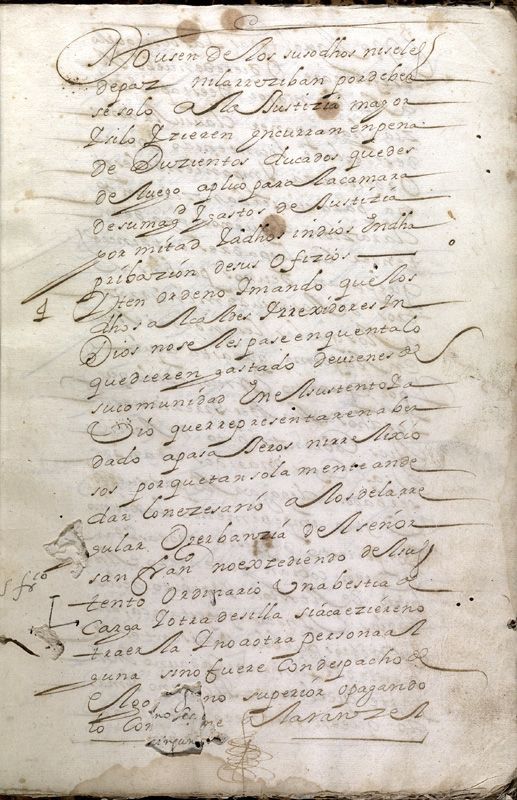 A Vusen de los susodhos nisele
depaz nilarreziban por deber
se solo a la Justizia mayor
Y silo Yzieren yncurran enpena
de Duzientos ducados quedes
de luego aplico para la camara
desumagd Y gastos de Justizia
por mitad Y adhos indios En dha
pribazion desus Ofizios
1 Yten ordeno Y mando que los
dhos alcaldes Y rrexidores In
Dios no se les pase en quenta lo
que dieren gastado de vienes de
su comunidad En el sustento Y a
Vio que rrepresentaren aber
dado apasaJeros ni rrelixio
sos por que tan solamente an de
dar lo nezesario a los de la rre
gular Oserbanzia de el señor
san fran no exzediendo de el sus
tento Ordinario Una bestia de
carga Y otra de silla si acaezieren o
traer la Y no a otra persona al
guna sino fuere con despacho de
el go no superior o pagando
lo con me el aranzel